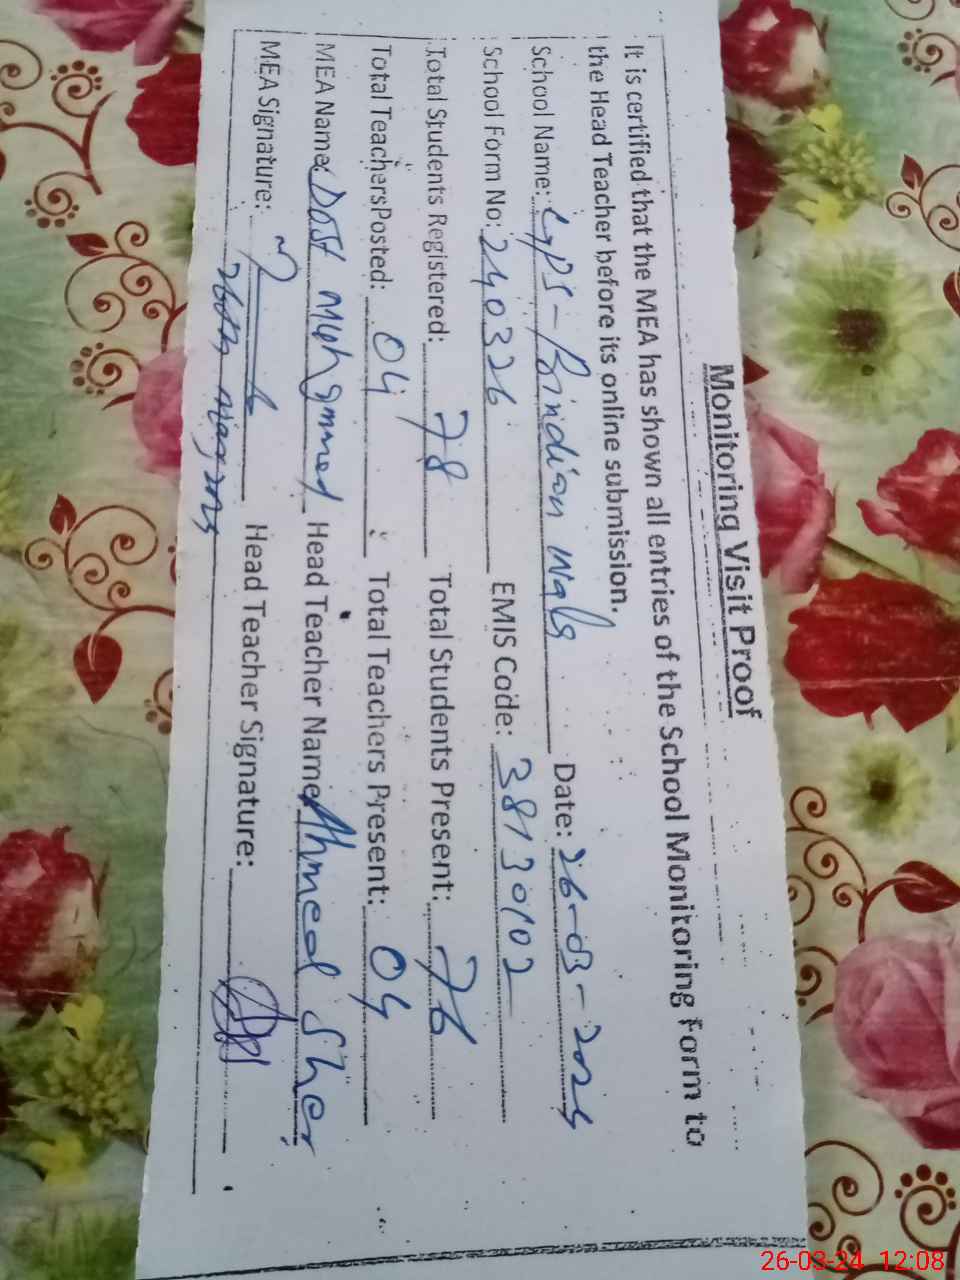 Monitoring Visit Proof
It is certified that the MEA has shown all entries of the School Monitoring Form to
the Head Teacher before its online submission.
School Name: GPS-Bindian Wala Date: 26-03-2024
School Form No: 240326 EMIS Code: 38130102
Total Students Registered: 78 Total Students Present: 76
Total TeachersPosted: 04 Total Teachers Present: 04
MEA Name: Dost Muhammed Head Teacher Name: Ahmed Sher
MEA Signature: Head Teacher Signature:
26-03-24 12:08